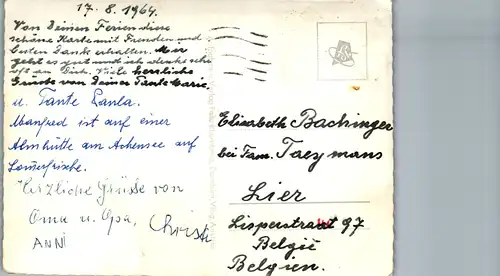 17.8.1964.
Von Deinen Ferien diese
schöne Karte mit Freuden und
besten Dank erhalten. Mir
geht es gut und ich denke sehr
oft an Dich. Viele herzliche
Grüsse von Deiner Tante Marie.
u. Tante Paula.
Manfred ist auf einer
Almhütte am Achensee auf
Somerfrische.
Herzliche Grüsse von
Oma u. Opa. Christl
ANNI
Elisabeth Bachinger
bei Fam. Taeymans
Lier
Lisperstraat 97
België
Belgien.